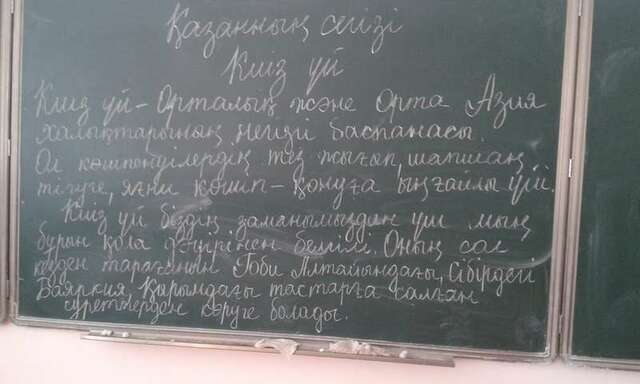 Қазанның сегізі
Киіз үй
Киіз үй - Орталық және Орта Азия
халықтарының негізгі баспанасы.
Ол көшпенділердің тез жығып, шапшаң
тігуге, яғни көшіп - қонуға ыңғайлы үйі.
Киіз үй біздің заманымыздан үш мың
бұрын қола дәуірінен белгілі. Оның сол
кезден тарағанын Гоби Алтайындағы, Сібірдегі
Бояркия, Қырымдағы тастарға салған
суреттерден көруге болады.